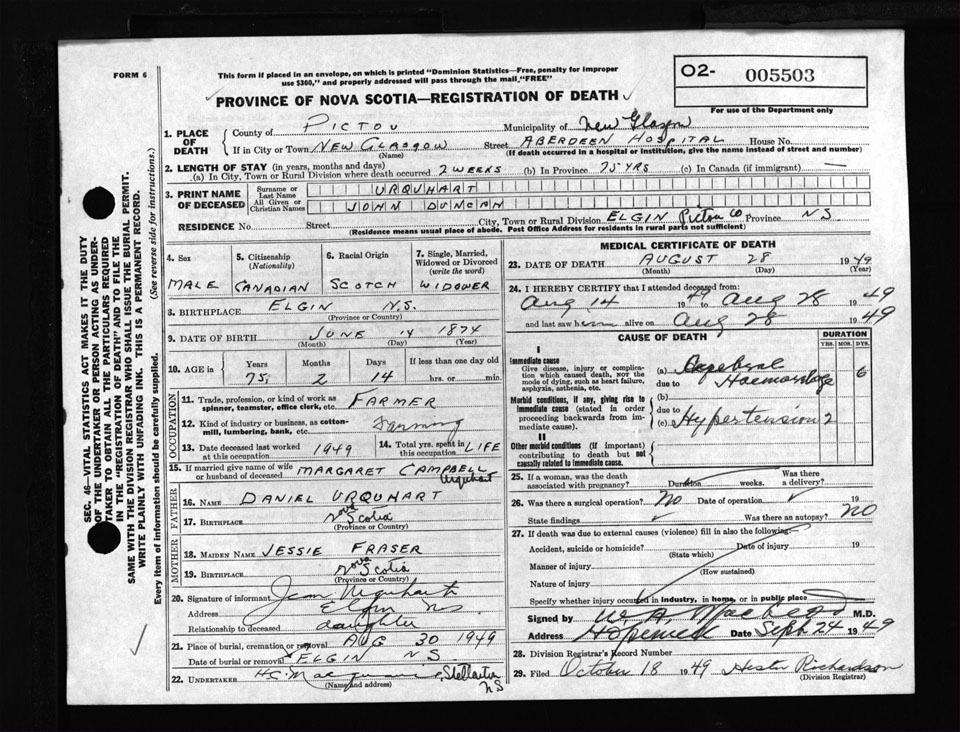 FORM 6
This form if placed in an envelope, on which is printed "Dominion Statistics—Free, penalty for improper
use $300," and properly addressed will pass through the mail, "FREE"
PROVINCE OF NOVA SCOTIA—REGISTRATION OF DEATH
O2- 005503
For use of the Department only
SEC. 46—VITAL STATISTICS ACT MAKES IT THE DUTY
OF THE UNDERTAKER OR PERSON ACTING AS UNDER-
TAKER TO OBTAIN ALL THE PARTICULARS REQUIRED
IN THE "REGISTRATION OF DEATH" AND TO FILE THE
SAME WITH THE DIVISION REGISTRAR WHO SHALL ISSUE THE BURIAL PERMIT.
WRITE PLAINLY WITH UNFADING INK. THIS IS A PERMANENT RECORD.
Every item of information should be carefully supplied. (See reverse side for instructions.)
1. PLACE OF DEATH
County of PICTOU Municipality of New Glasgow
If in City or Town NEW GLASGOW Street ABERDEEN HOSPITAL House No.
(Name) (If death occurred in a hospital or institution, give the name instead of street and number)
2. LENGTH OF STAY (in years, months and days)
(a) In City, Town or Rural Division where death occurred 2 WEEKS (b) In Province 75 YRS (c) In Canada (if immigrant) —
3. PRINT NAME OF DECEASED
Surname or Last Name URQUHART
All Given or Christian Names JOHN DUNCAN
RESIDENCE No. Street City, Town or Rural Division ELGIN Pictou Co Province NS
(Residence means usual place of abode. Post Office Address for residents in rural parts not sufficient)
4. Sex
MALE
5. Citizenship (Nationality)
CANADIAN
6. Racial Origin
SCOTCH
7. Single, Married, Widowed or Divorced (write the word)
WIDOWER
8. BIRTHPLACE ELGIN N.S.
(Province or Country)
9. DATE OF BIRTH JUNE 14 1874
(Month) (Day) (Year)
10. AGE in
Years Months Days If less than one day old
75 2 14 hrs. or min.
OCCUPATION
11. Trade, profession, or kind of work as spinner, teamster, office clerk, etc. FARMER
12. Kind of industry or business, as cotton-mill, lumbering, bank, etc. Farming
13. Date deceased last worked at this occupation 1949
14. Total yrs. spent in this occupation LIFE
15. If married give name of wife or husband of deceased MARGARET CAMPBELL Urquhart
FATHER
16. NAME DANIEL URQUHART
17. BIRTHPLACE Nova Scotia
(Province or Country)
MOTHER
18. MAIDEN NAME JESSIE FRASER
19. BIRTHPLACE Nova Scotia
(Province or Country)
20. Signature of informant Jean Urquhart
Address Elgin NS.
Relationship to deceased daughter
21. Place of burial, cremation or removal AUG 30 1949
Date of burial or removal ELGIN NS
22. UNDERTAKER H.C. Stellarton NS
(Name and address)
MEDICAL CERTIFICATE OF DEATH
23. DATE OF DEATH AUGUST 28 1949
(Month) (Day) (Year)
24. I HEREBY CERTIFY that I attended deceased from:
Aug 14 1949 to Aug 28 1949
and last saw him alive on Aug 28 1949
CAUSE OF DEATH
DURATION
YRS. MOS. DYS.
I
Immediate cause
Give disease, injury or complication which caused death, not the mode of dying, such as heart failure, asphyxia, asthenia, etc.
(a) Cerebral 6
due to Haemorrhage
Morbid conditions, if any, giving rise to immediate cause (stated in order proceeding backwards from immediate cause).
(b)
due to
(c) Hypertension 2
II
Other morbid conditions (if important) contributing to death but not causally related to immediate cause.
25. If a woman, was the death associated with pregnancy? Duration weeks. Was there a delivery?
26. Was there a surgical operation? No Date of operation 19
State findings Was there an autopsy? NO
27. If death was due to external causes (violence) fill in also the following:
Accident, suicide or homicide? Date of injury 19
(State which)
Manner of injury
(How sustained)
Nature of injury
Specify whether injury occurred in industry, in home, or in public place
Signed by W. A. M.D.
Address Hopewell Date Sept 24 1949
28. Division Registrar's Record Number
29. Filed October 18 1949 Hester Richardson
(Division Registrar)